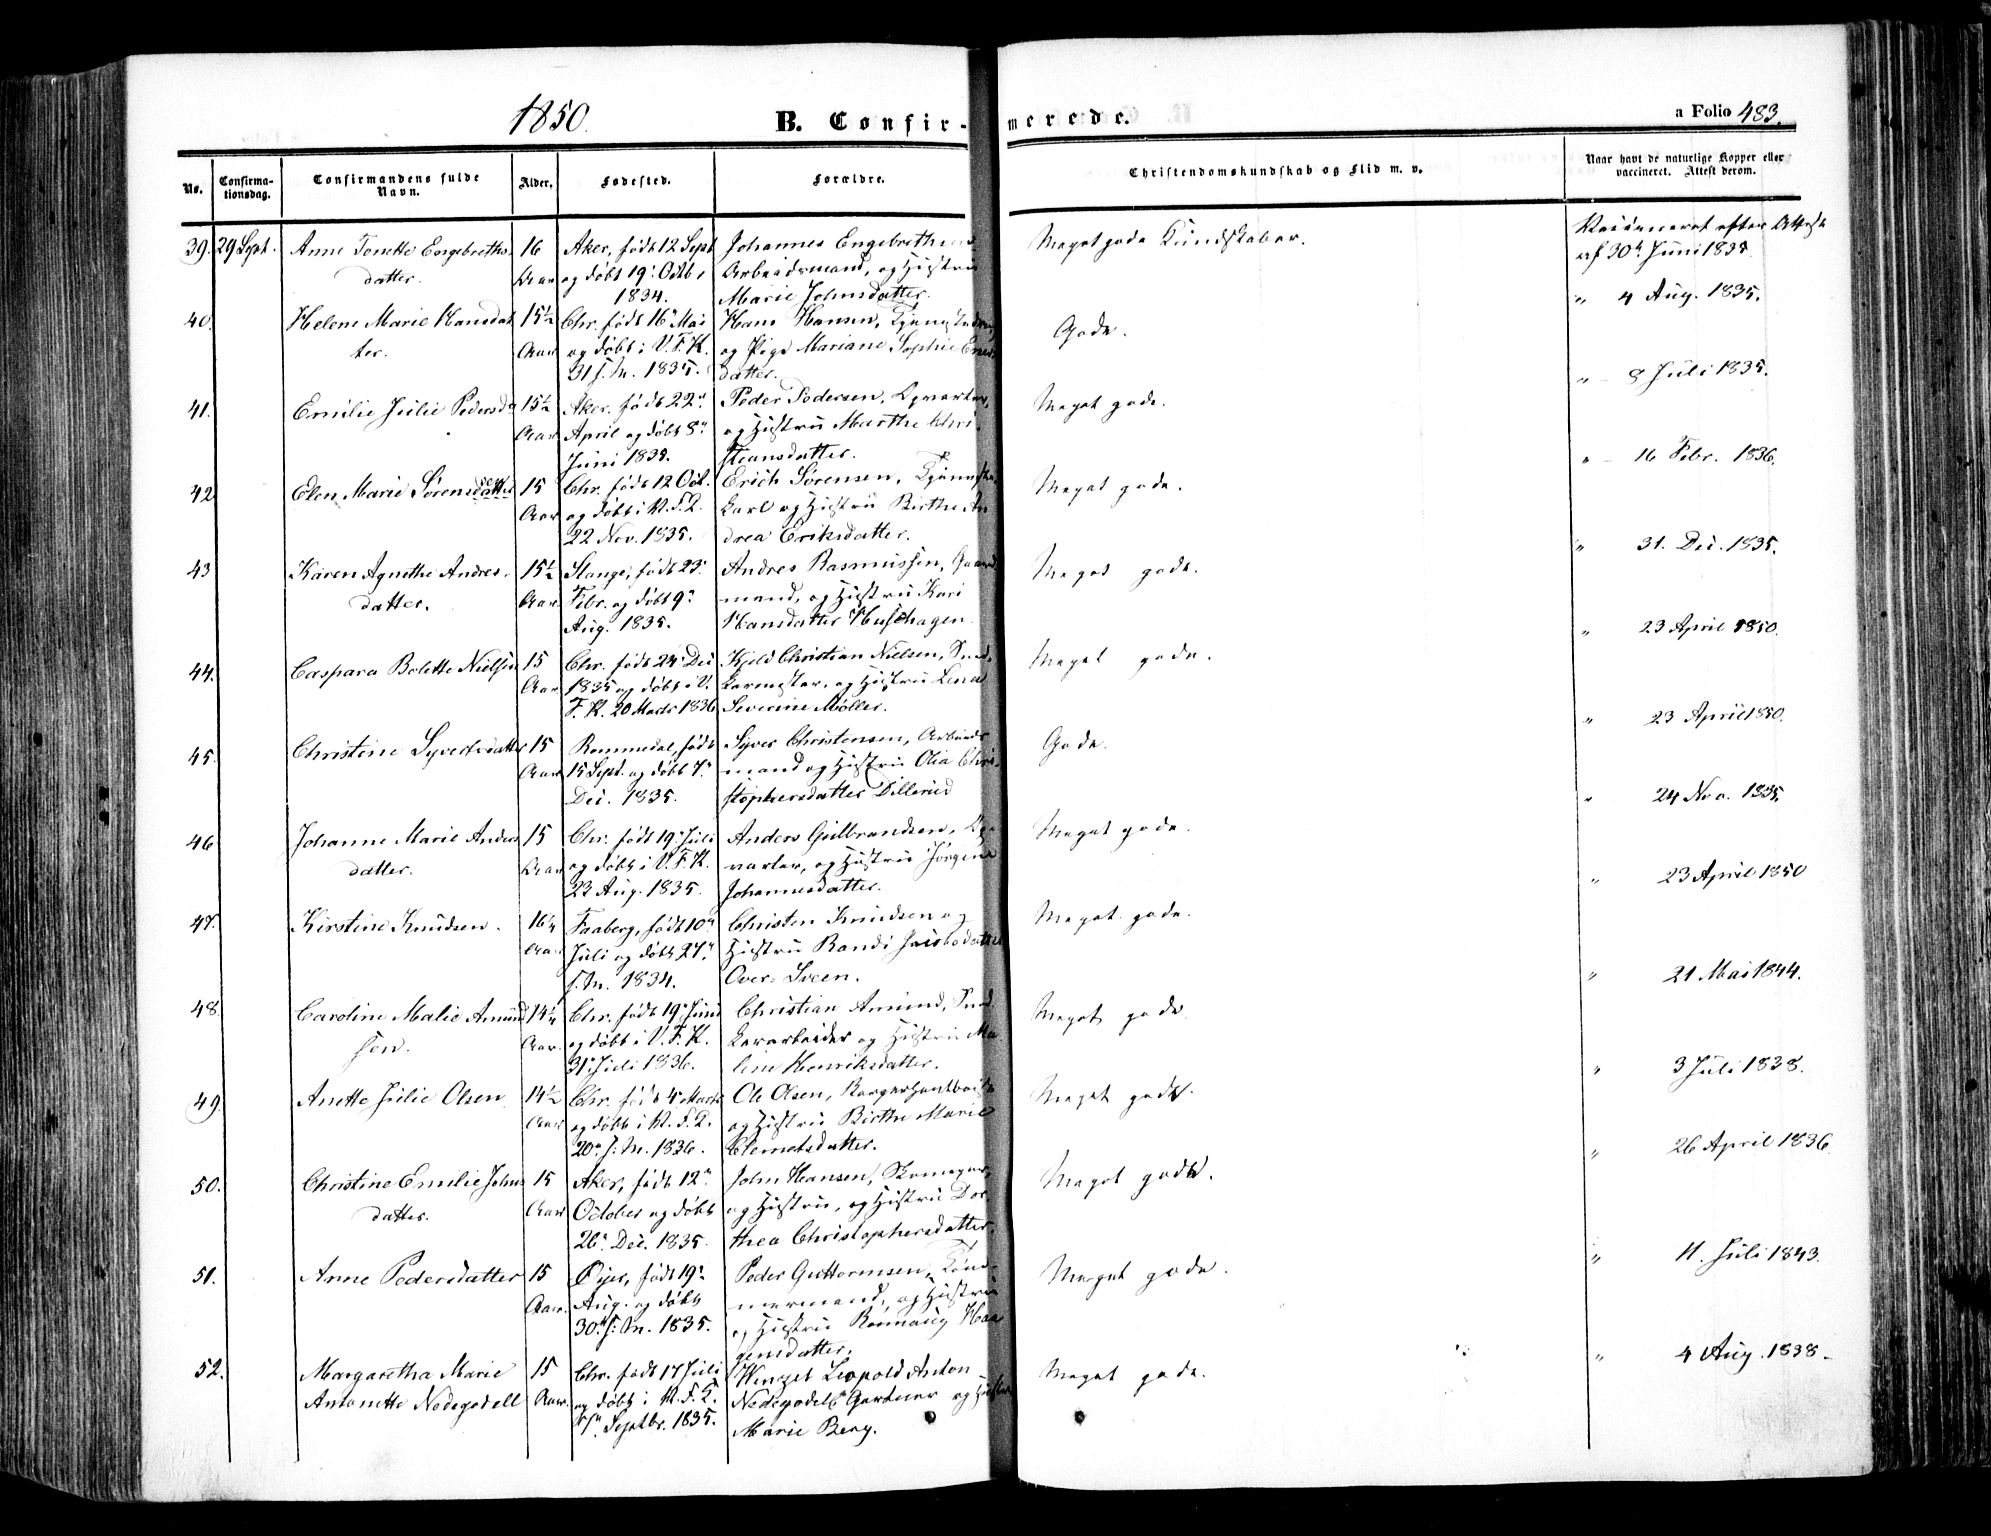 1850.
B. Confir-merede.
a Folio 483.
No.
Confirma-
tionsdag.
Confirmandens fulde
Navn.
Alder.
Fødested.
Forældre.
Christendomskundskab og Flid m. v.
Naar havt de naturlige Kopper eller
vaccineret. Attest derom.
39. 29 Sept. Anne Tonette Engebreths 16 Aker, født 12 Sept Johannes Engebrethsens Meget gode Kundskaber. Vaccineret efter Attest
datter. Aar og døbt 19. Octb. Arbeidsmand, og Hustru af 30te Juni 1835
1834. Marie Johnsdatter.
40. Helene Marie Hansdat 15½ Chr. født 16 Mai Hans Hansen, Gode. " 4 Aug. 1835.
ter. Aar og døbt i V. F. K. og Pige Mariane Sophie
31 s. M. 1835. datter.
41. Emilie Julie Pedersd 15½ Aker. født 22de Peder Pedersen, Opvarter, Meget gode. " 8 Juli 1835.
Aar April og døbt 8de og Hustru Marthe Chri
Juni 1835. stiansdatter.
42 Elen Marie Sørensdatter sen 15 Chr. født 12 Oct. Erich Sørensen, Meget gode. " 16 Febr. 1836.
Aar og døbt i V. F. K. karl og Hustru Birthe An
22 Nov. 1835. drea Eriksdatter.
43 Karen Agnethe Andres 15½ Stange, født 23 Andres Rasmussen, Gaard Meget gode. " 31. Dec. 1835.
datter. Aar Febr. og døbt 9de mand, og Hustru Kari
Aug. 1835. Hansdatter Huschagen
44. Caspara Bolette Nielsen 15 Chr. født 24 Dec Kjeld Christian Nielsen, Sned Meget gode. " 23 April 1850.
Aar 1835 og døbt i V. kermester, og Hustru Lena
F. K. 20 Marts 1836 Severine Møller.
45. Christine Syversdatter 15 Rommedal, født Syver Christensen, Arbeids Gode. " 23 April 1850.
Aar 15 Sept. og døbt 7de mand og Hustru Olia Chri
Dec. 1835. stophersdatter Dillerud
46 Johanne Marie Anders 15 Chr. født 19 Juli Anders Gulbrandsen, Op Meget gode. " 24 Nov. 1835.
datter. Aar og døbt i V. F. K. varter, og Hustru Jørgine
23 Aug. 1835. Johannesdatter.
47. Kirstine Knudsen. 16¼ Faaberg, født 10de Christen Knudsen og Meget gode. " 23 April 1850
Aar Juli og døbt 27de Hustru Randi
s. M. 1834. Over-Sveen.
48 Caroline Malie Amund 14¼ Chr. født 19 Juni Christian Amund, Sned Meget gode " 21 Mai 1844.
sen. Aar. og døbt i V. F. K. kerarbeider og Hustru Ma
31 Juli 1836. line Henriksdatter.
49. Anette Julie Olsen 14½ Chr. født 4 Marts Ole Olsen, Meget gode. " 3 Juli 1838.
Aar og døbt i V. F. K. og Hustru Birthe Marie
20de s. M. 1836. Clemetsdatter.
50. Christine Emilie Johns 15 Aker, født 12te John Hansen, Skomager, Meget gode. " 26 April 1836
datter. Aar October og døbt og Hustru, og Hustru Dor
26de Dec. 1835. thea Christophersdatter.
51. Anne Pedersdatter 15 Øijer, født 19de Peder Guttormsen, Tøm Meget gode. " 11. Juli 1843.
Aar. Aug. og døbt mermand, og Hustru
30de s: M. 1835. og Hustru Haa
gensdatter.
52. Margaretha Marie 15 Chr. født 17 Juli Leopold Anton Meget gode. " 4 Aug. 1838
Antonette Nedegodell Aar. og døbt i V. F. K. Nedegodell Gartner og Hustru
Septbr. 1835. Marie Berg.